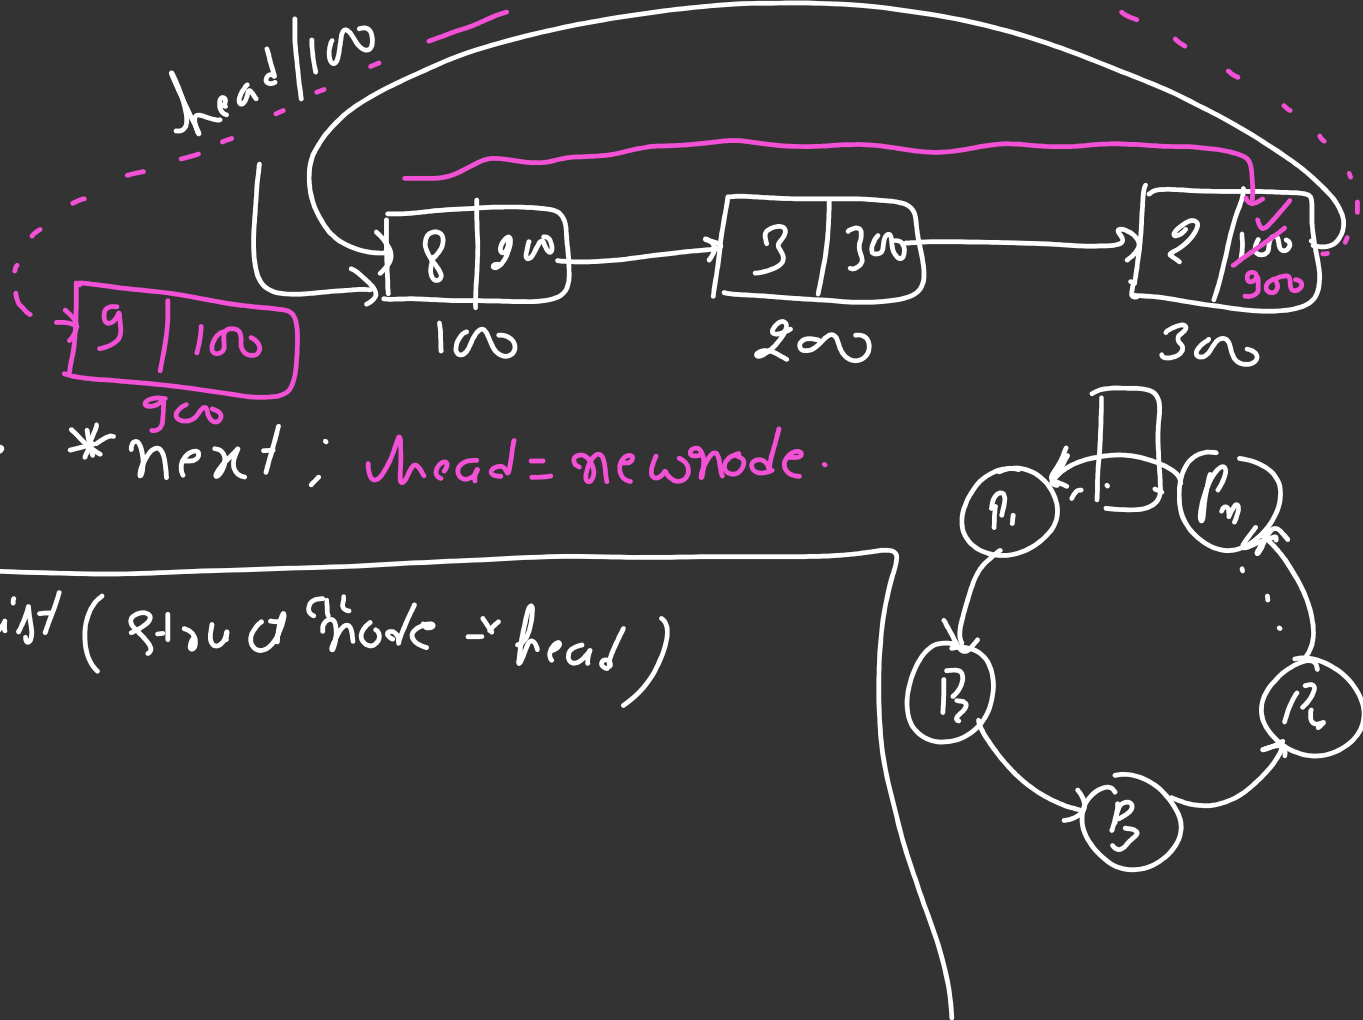 head/100
8 900 3 300 2 100
900
9 100 100 200 300
900
*next; head=newnode.
ist(struct node *head)
P1 Pn
P3
P3